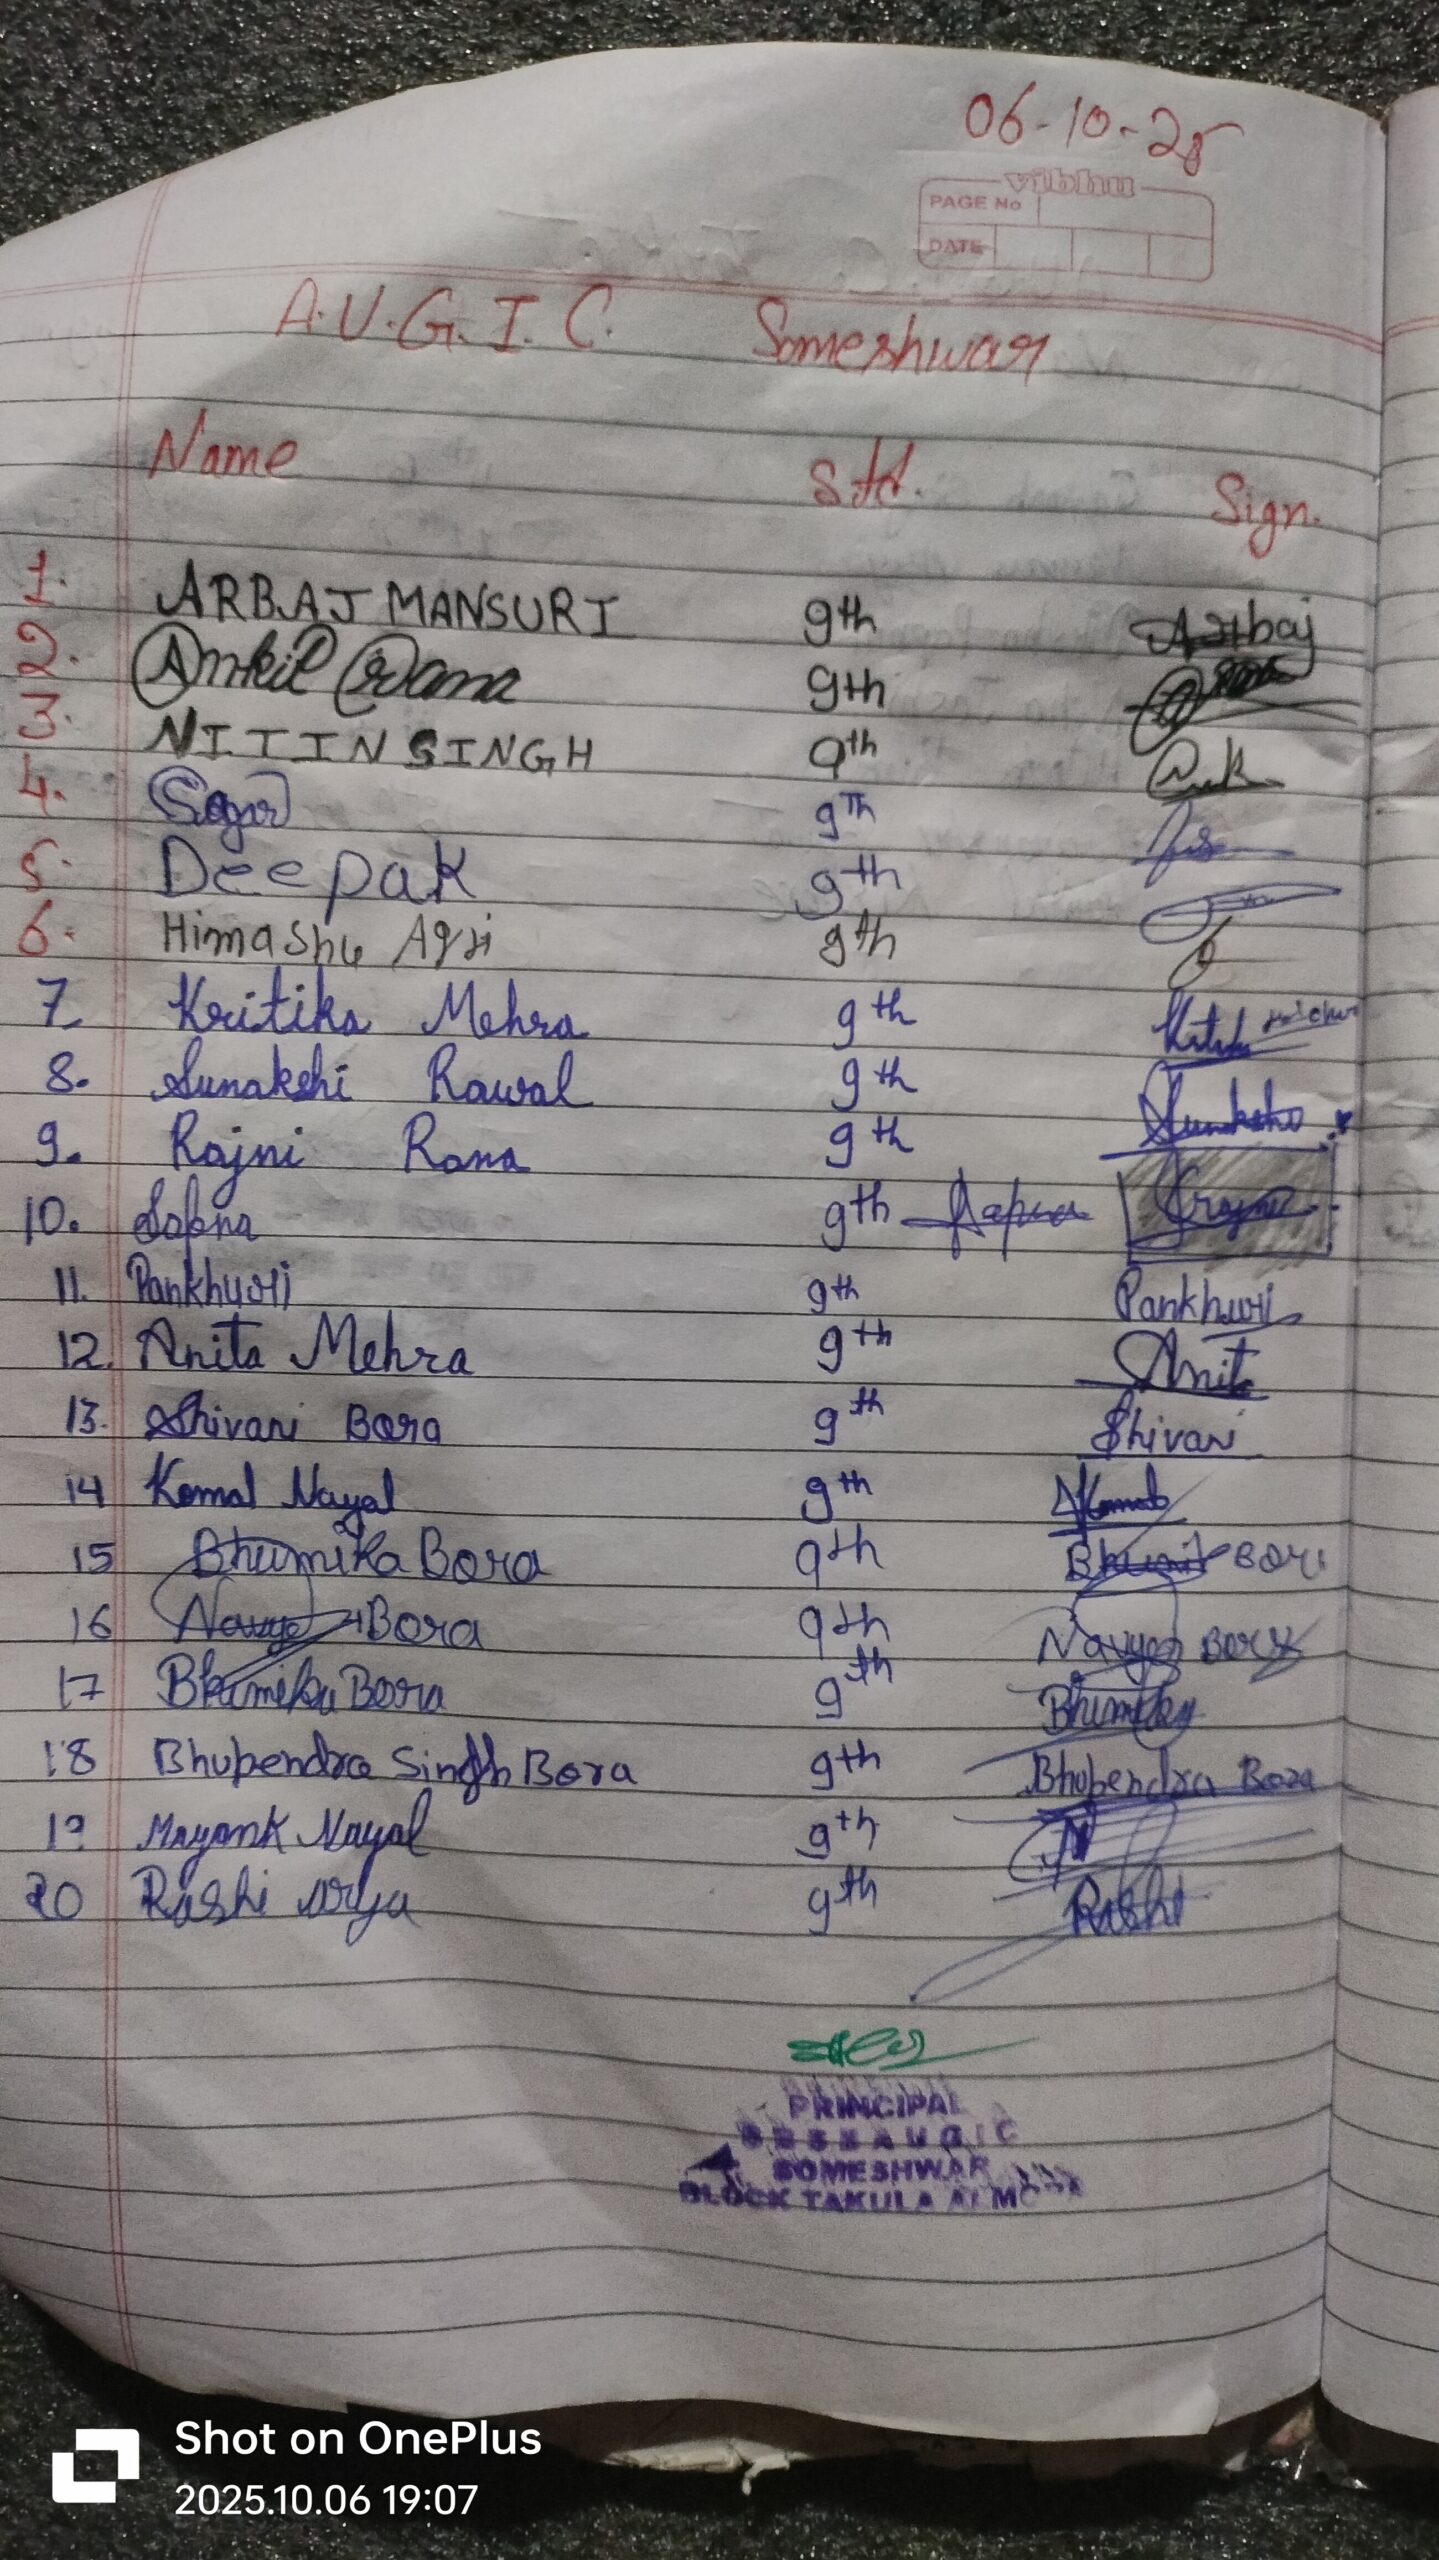 06-10-25
vibhu
PAGE No
DATE
A.U.G.I.C. Someshwar
Name Std. Sign.
1. ARBAJ MANSURI 9th Arbaj
2. Ankit Rana 9th
3. NITIN SINGH 9th
4. Sagar 9Th
5. Deepak 9th
6. Himashu Agri 9th
7. Kritika Mehra 9th
8. Sunakshi Rawal 9th
9. Rajni Rana 9th
10. Sapna 9th Sapna Rajni
11. Pankhuri 9th Pankhuri
12. Anita Mehra 9th Anita
13. Shivani Bora 9th Shivani
14 Komal Nayal 9th Komal
15 Bhumika Bora 9th
16 Navya Bora 9th Navya Bora
17 Bhumika Bora 9th
18 Bhupendra Singh Bora 9th Bhupendra Bora
19 Mayank Nayal 9th
20 Rashi arya 9th Rashi
PRINCIPAL
A U G I C
SOMESHWAR
BLOCK TAKULA ALMORA
Shot on OnePlus
2025.10.06 19:07